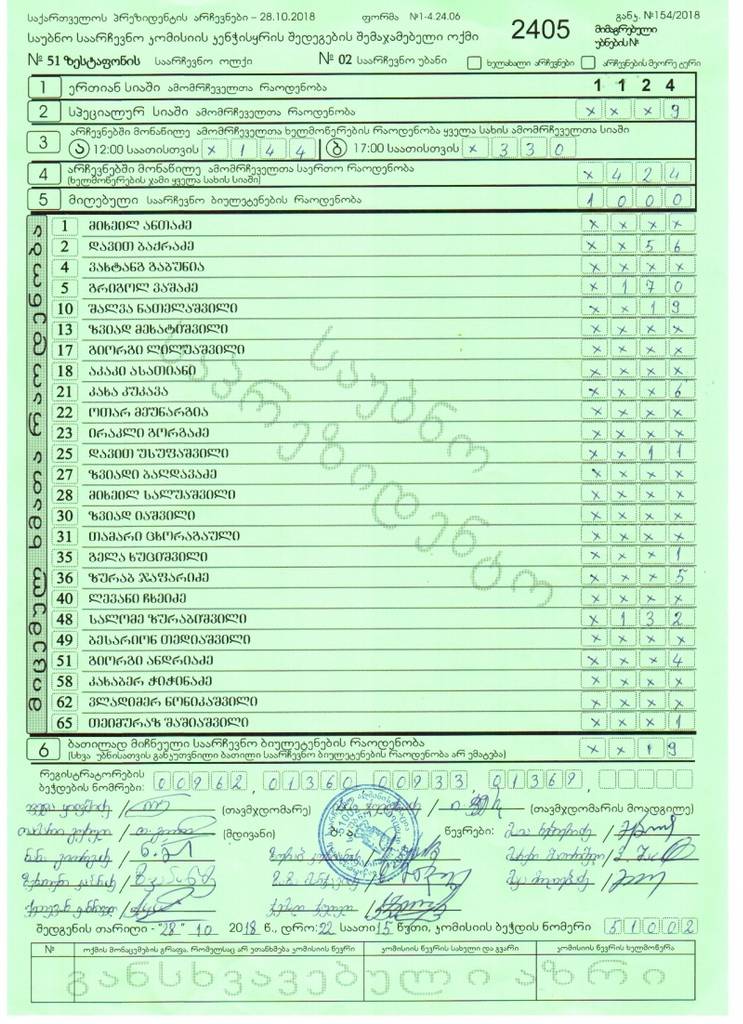 საქართველოს პრეზიდენტის არჩევნები – 28.10.2018 ფორმა №1-4.24.06 განკ. №154/2018
საუბნო საარჩევნო კომისიის კენჭისყრის შედეგების შემაჯამებელი ოქმი 2405 მიმაგრებული უბნების №
№ 51 ზესტაფონის საარჩევნო ოლქი № 02 საარჩევნო უბანი ხელახალი არჩევნები არჩევნების მეორე ტური
1 ერთიან სიაში ამომრჩეველთა რაოდენობა 1 1 2 4
2 სპეციალურ სიაში ამომრჩეველთა რაოდენობა x x x 9
3 არჩევნებში მონაწილე ამომრჩეველთა ხელმოწერების რაოდენობა ყველა სახის ამომრჩეველთა სიაში
ა 12:00 საათისთვის x 1 4 4 ბ 17:00 საათისთვის x 3 3 0
4 არჩევნებში მონაწილე ამომრჩეველთა საერთო რაოდენობა x 4 2 4
(ხელმოწერების ჯამი ყველა სახის სიაში)
5 მიღებული საარჩევნო ბიულეტენების რაოდენობა 1 0 0 0
მიცემულ ხმათა რაოდენობა
1 მიხეილ ანთაძე x x x x
2 დავით ბაქრაძე x x 5 6
4 ვახტანგ გაბუნია x x x x
5 გრიგოლ ვაშაძე x 1 7 0
10 შალვა ნათელაშვილი x x 1 9
13 ზვიად მეხატიშვილი x x x x
17 გიორგი ლილუაშვილი x x x x
18 აკაკი ასათიანი x x x x
21 კახა კუკავა x x x 6
22 ოთარ მეუნარგია x x x x
23 ირაკლი გორგაძე x x x x
25 დავით უსუფაშვილი x x 1 1
27 ზვიადი ბაღდავაძე x x x x
28 მიხეილ სალუაშვილი x x x x
30 ზვიად იაშვილი x x x x
31 თამარი ცხორაგაული x x x x
35 გელა ხუციშვილი x x x 1
36 ზურაბ ჯაფარიძე x x x 5
40 ლევანი ჩხეიძე x x x x
48 სალომე ზურაბიშვილი x 1 3 2
49 ბესარიონ თედიაშვილი x x x x
51 გიორგი ანდრიაძე x x x 4
58 კახაბერ ჭიჭინაძე x x x x
62 ვლადიმერ ნონიკაშვილი x x x x
65 თეიმურაზ შაშიაშვილი x x x 1
საუბნო
საპრეზიდენტო
6 ბათილად მიჩნეული საარჩევნო ბიულეტენების რაოდენობა x x 1 9
(სხვა უბნისათვის განკუთვნილი ბათილი საარჩევნო ბიულეტენების რაოდენობა არ ემატება)
რეგისტრატორების
ბეჭდების ნომრები: 00962 01360 00933 01369
(თავმჯდომარე) (თავმჯდომარის მოადგილე)
(მდივანი) ბ.ა. წევრები:
შედგენის თარიღი - "28" 10 2018 წ., დრო: 22 საათი 15 წუთი, კომისიის ბეჭდის ნომერი 51002
№ ოქმის მონაცემების გრაფა, რომელსაც არ ეთანხმება კომისიის წევრი კომისიის წევრის სახელი და გვარი კომისიის წევრის ხელმოწერა
განსხვავებული აზრი